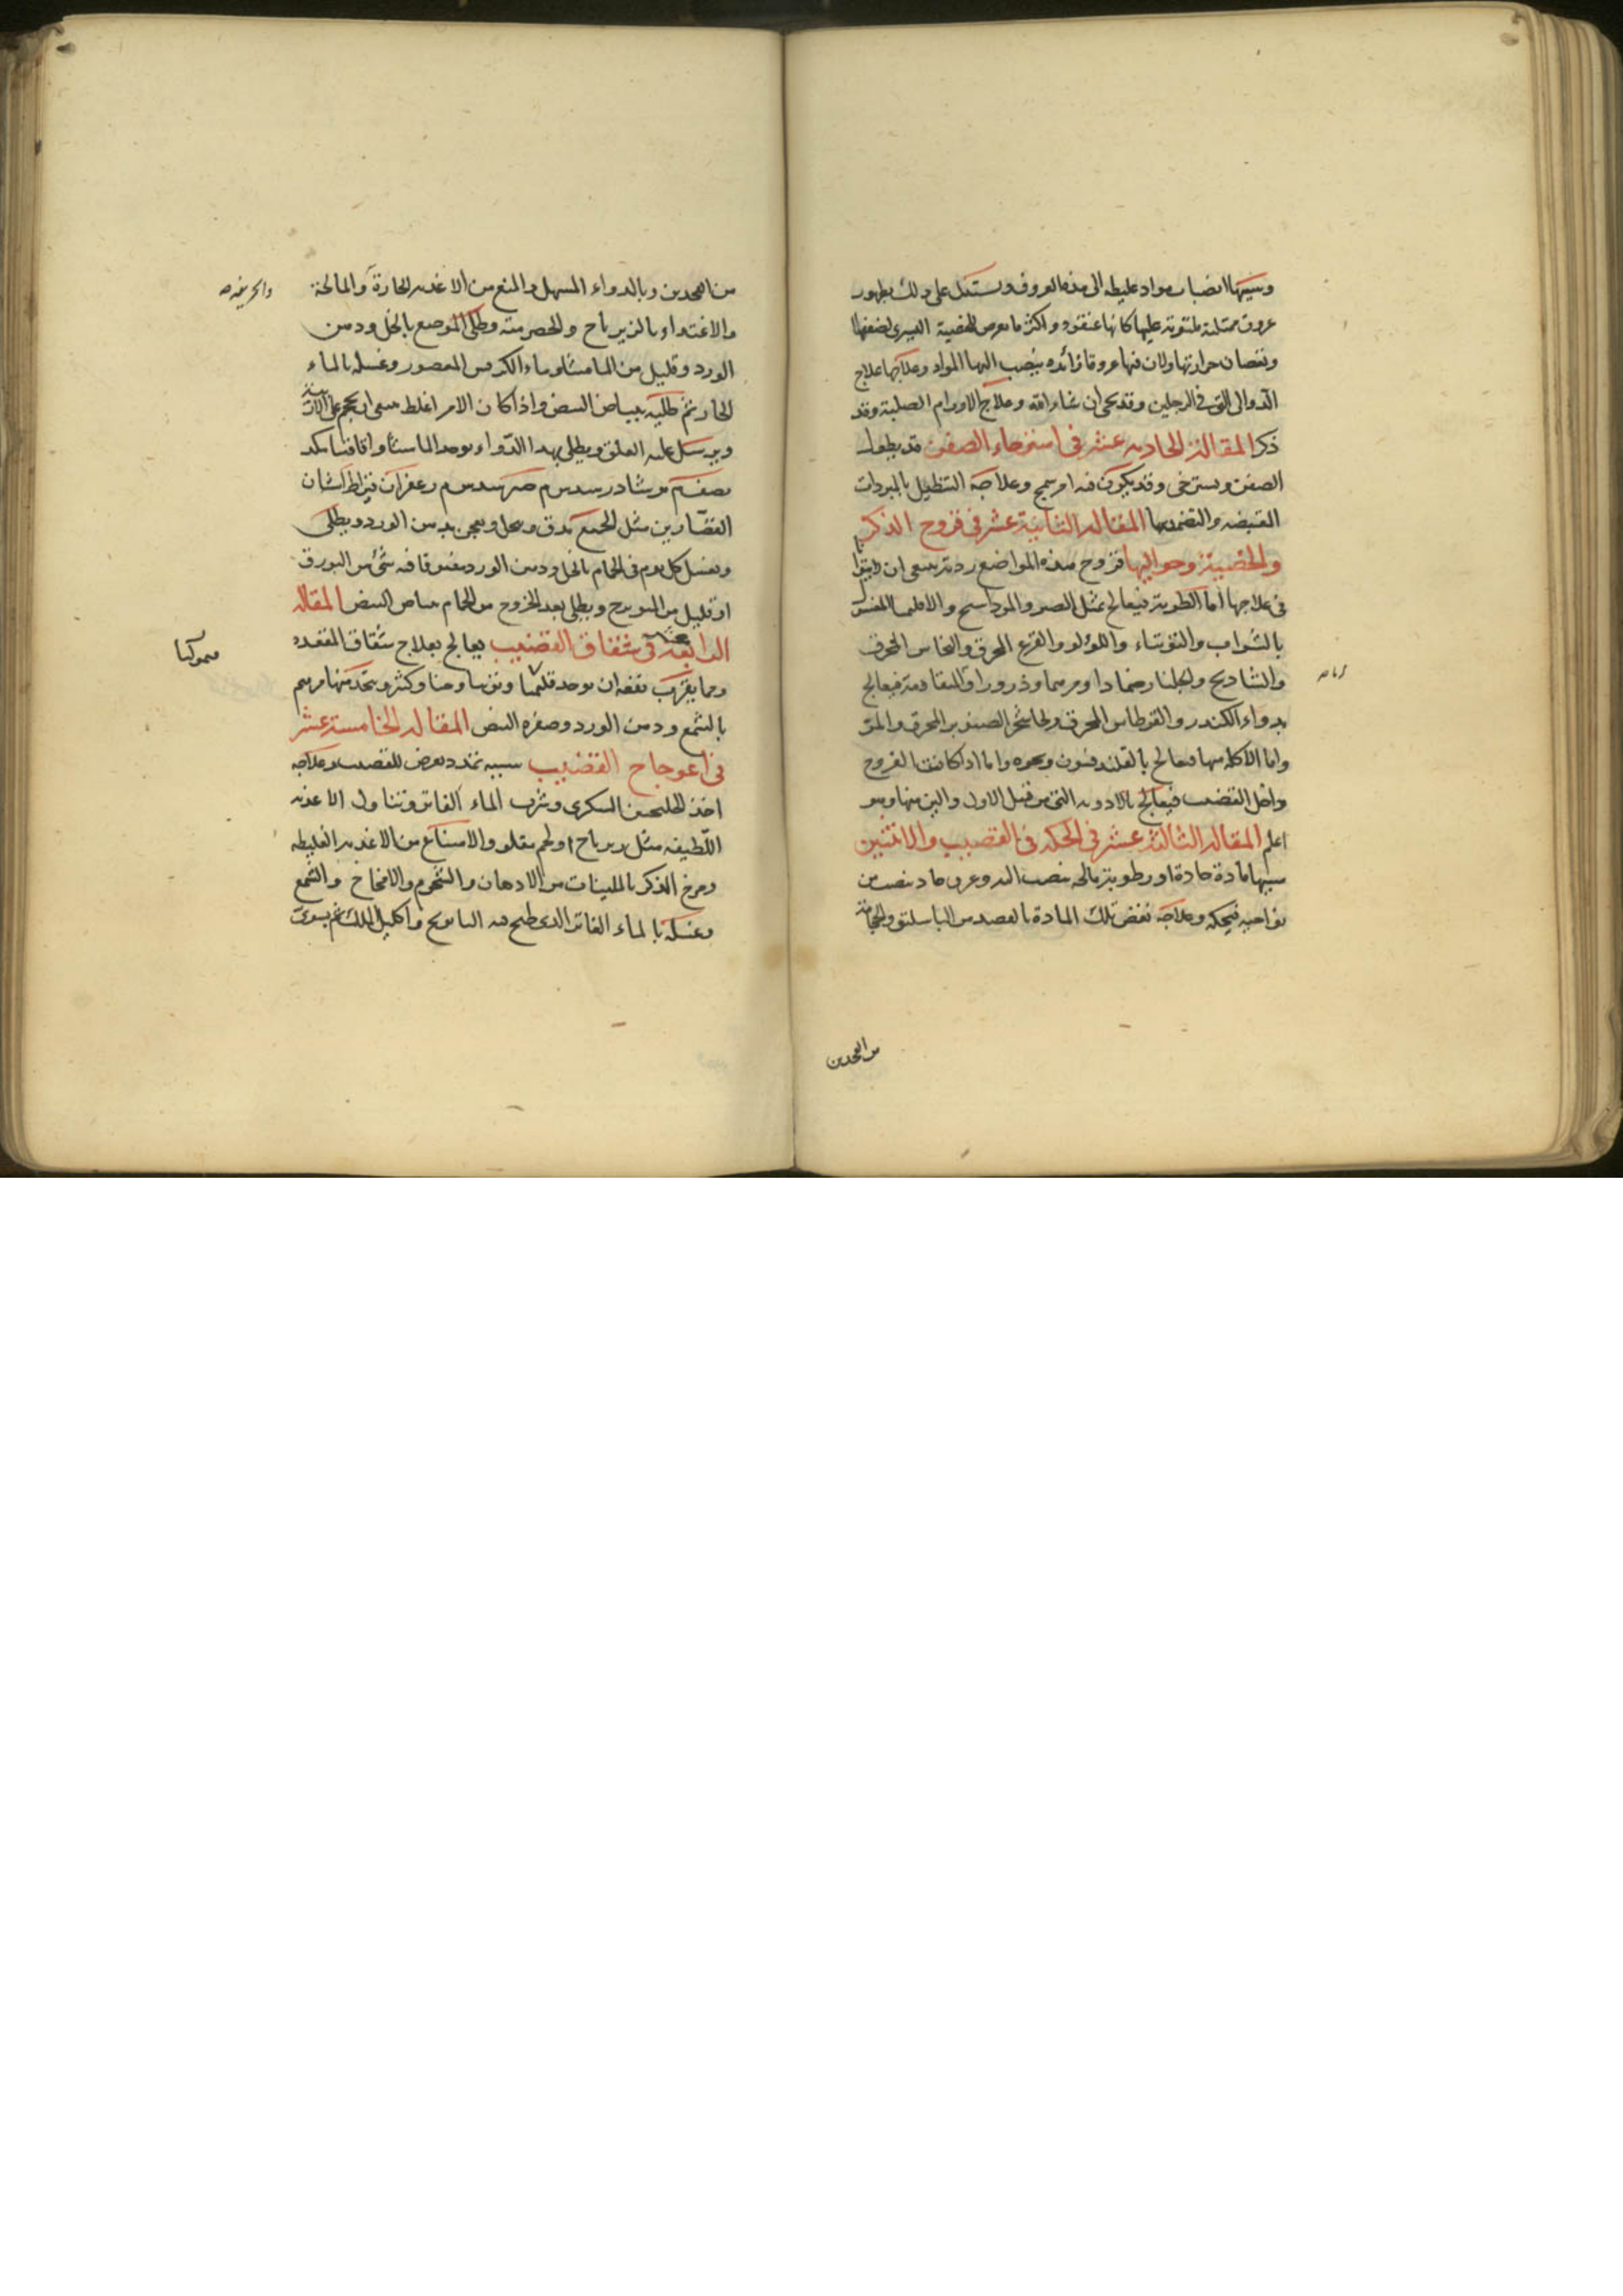 وسببها انصباب مواد غليظه الى هذه العروف ويستدل على ذلك بظهور
عروق ممتلئة ملتوية عليها كانها عنقود واكثر ما يعرض للخصية اليسرى لضعفها
ونقصان حرارتها ولان فيها عروقا زائده ينصب اليها المواد وعلاجها علاج
الدوالى التى فى الرجلين وقد يجى ان شاء الله وعلاج الاورام الصلبة وقد
ذكر المقالة الحاديه عشر فى استرخاء الصفن قد يطول
الصفن ويسترخى وقد يكون فيه امر سمج وعلاجه التنطيل بالمبردات
القبضه والتضميد بها المقاله الثانية عشر فى قروح الذكر
والخصية وحواليها قروح هذه المواضع ردية ينبغى ان
فى علاجها اما الطوية فيعالج بمثل الصبر والمرداسنج والاقليميا المغسول
بالشراب والتوتياء واللؤلؤ والقرع المحرق والنحاس المحرق
والشادنج والجلنار ضمادا ومرهما وذرورا والمتقادمة فيعالج
بدواء الكندر والقرطاس المحرق ولحا شجر الصنوبر المحرق والمر
واما الاكله منها فيعالج بالقلندفيون ونحوه واما اذا كانت القروح
داخل القضيب فيعالج بالادويه التى من قبل الاول والين منها وهو
اعلم المقاله الثالثة عشر فى الحكه فى القضيب والانثيين
سببها مادة حادة او رطوبة مالحه ينصب اليه وعرق حاد ينصب من
نواحيه فيحكه وعلاجه نفض تلك المادة بالفصد من الباسليق والحجامة
من الفخذين
من الفخذين وبالدواء المسهل والمنع من الاغذيه الحارة والمالحة
والحريفه صح
والاغتذاء بالزيرباج والحصرميته وطلى الموضع بالخل ودهن
الورد وقليل من الماميثا وماء الكرفس المعصور وغسله بالماء
الحار ثم طليه ببياض البيض واذا كان الامر اغلظ ينبغى ان يحجم على
ويرسل عليه العلق ويطلى بهذا الدواء يوخذ الماميثا واقاقيا
نصف نوشادر سدس صبر سدس زعفران قيراط اشنان
القصارين مثل الجميع يدق وينخل ويعجن بدهن الورد ويطلى
ويغسل كل يوم فى الحمام بالخل ودهن الورد مضروبا فيه شئ من البورق
او قليل من الميويزج ويطلى بعد الخروج من الحمام بياض البيض المقاله
الرابعة عشر فى شقاق القضيب يعالج بعلاج شقاق المقعده
ومما يقرب نفعه ان يوخذ قليميا وتوتيا وحنا وكثيرا ويتخذ منها مرهم
بالشمع ودهن الورد وصفره البيض المقاله الخامسة عشر
فى اعوجاج القضيب سببه تمدد يعرض للقضيب وعلاجه
اخذ الجلنجبين السكرى وشرب الماء الفاتر وتناول الاغذيه
اللطيفه مثل زيرباج او لحم مقلو والامتناع من الاغذيه الغليظه
ومرخ الذكر بالملينات من الادهان والشحوم والامخاخ والشمع
وغسله بالماء الفاتر الذى طبخ فيه البابونج واكليل الملك ثم يسوى